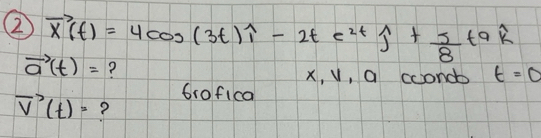 ② x⃗(t) = 4cos(3t) î - 2t e^2t ĵ + 5/8 t9 k̂
a⃗(t) = ? x, v, a cuando t = 0
v⃗(t) = ? Grafica